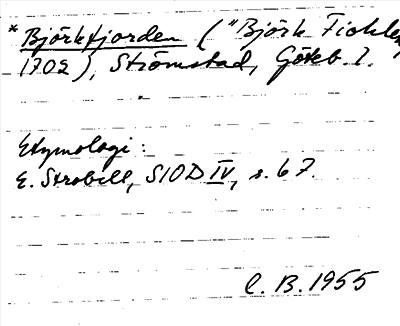 * Björkfjorden ("Björk Fiohlen,
1702), Strömstad, Göteb. l.
Etymologi:
E. Strobell, SIOD IV, s. 67.
C. B. 1955